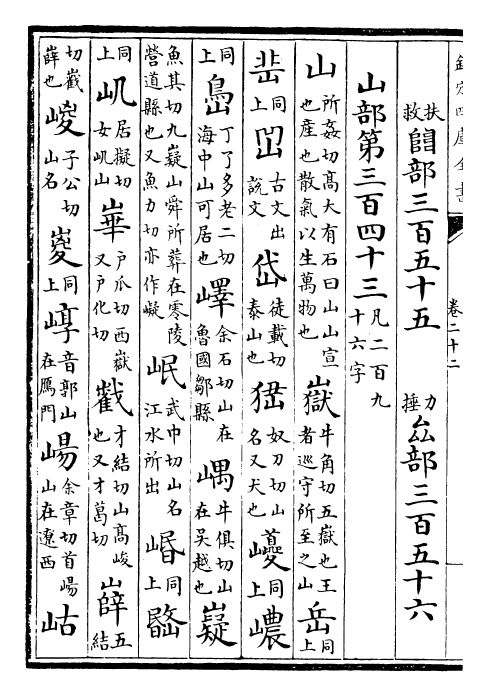 欽定四庫全書 卷二十二
扶救𨺅部三百五十五 力捶厽部三百五十六
山部第三百四十三 凡二百九十六字
山 所姦切髙大有石曰山山宣也產也散氣以生萬物也 嶽 牛角切五嶽也王者巡守所至之山 岳 同上
同上 古文出說文 岱 徒載切泰山也 峱 奴刀切山名又犬也 同上
同上 嶌 丁了多老二切海中山可居也 嶧 余石切山在魯國鄒縣 嵎 牛俱切山在吳越也 嶷
魚其切九嶷山舜所葬在零陵營道縣也又魚力切亦作㠜 岷 武巾切山名江水所出 同上
同上 㞦 居擬切女㞦山 崋 户爪切西嶽又户化切 巀 才結切山髙峻也又才葛切 嶭 五結
切巀嶭也 嵕 子公切山名 嵏 同上 崞 音郭山在鴈門 崵 余章切首崵山在遼西 岵